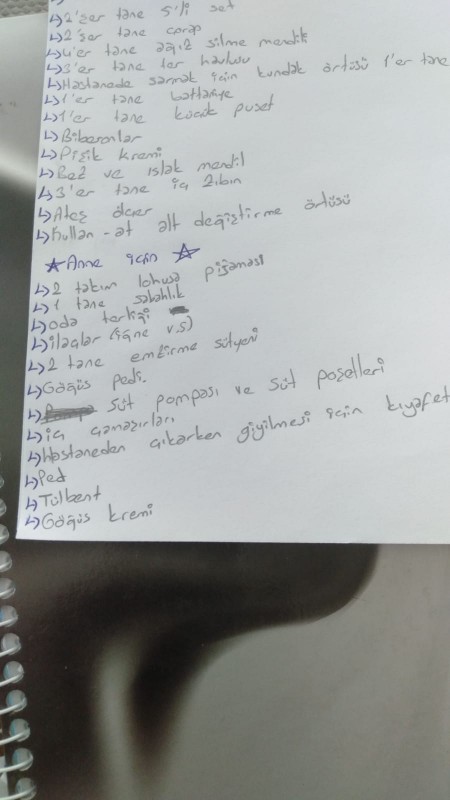 ↳2'şer tane 5'li set
↳2'şer tane çorap
↳4'er tane ağız silme mendili
↳3'er tane ter havlusu
↳Hastanede sarmak için kundak örtüsü 1'er tane
↳1'er tane battaniye
↳1'er tane küçük puset
↳Biberonlar
↳Pişik kremi
↳Bez ve ıslak mendil
↳3'er tane iç zıbın
↳Ateş ölçer
↳Kullan-at alt değiştirme örtüsü
☆Anne için ☆
↳2 takım lohusa pijaması
↳1 tane sabahlık
↳oda terliği
↳ilaçlar (iğne v.s)
↳2 tane emzirme sütyeni
↳Göğüs pedi.
↳süt pompası ve süt poşetleri
↳iç çamaşırları
↳Hastaneden çıkarken giyilmesi için kıyafet
↳Ped
↳Tülbent
↳Göğüs kremi